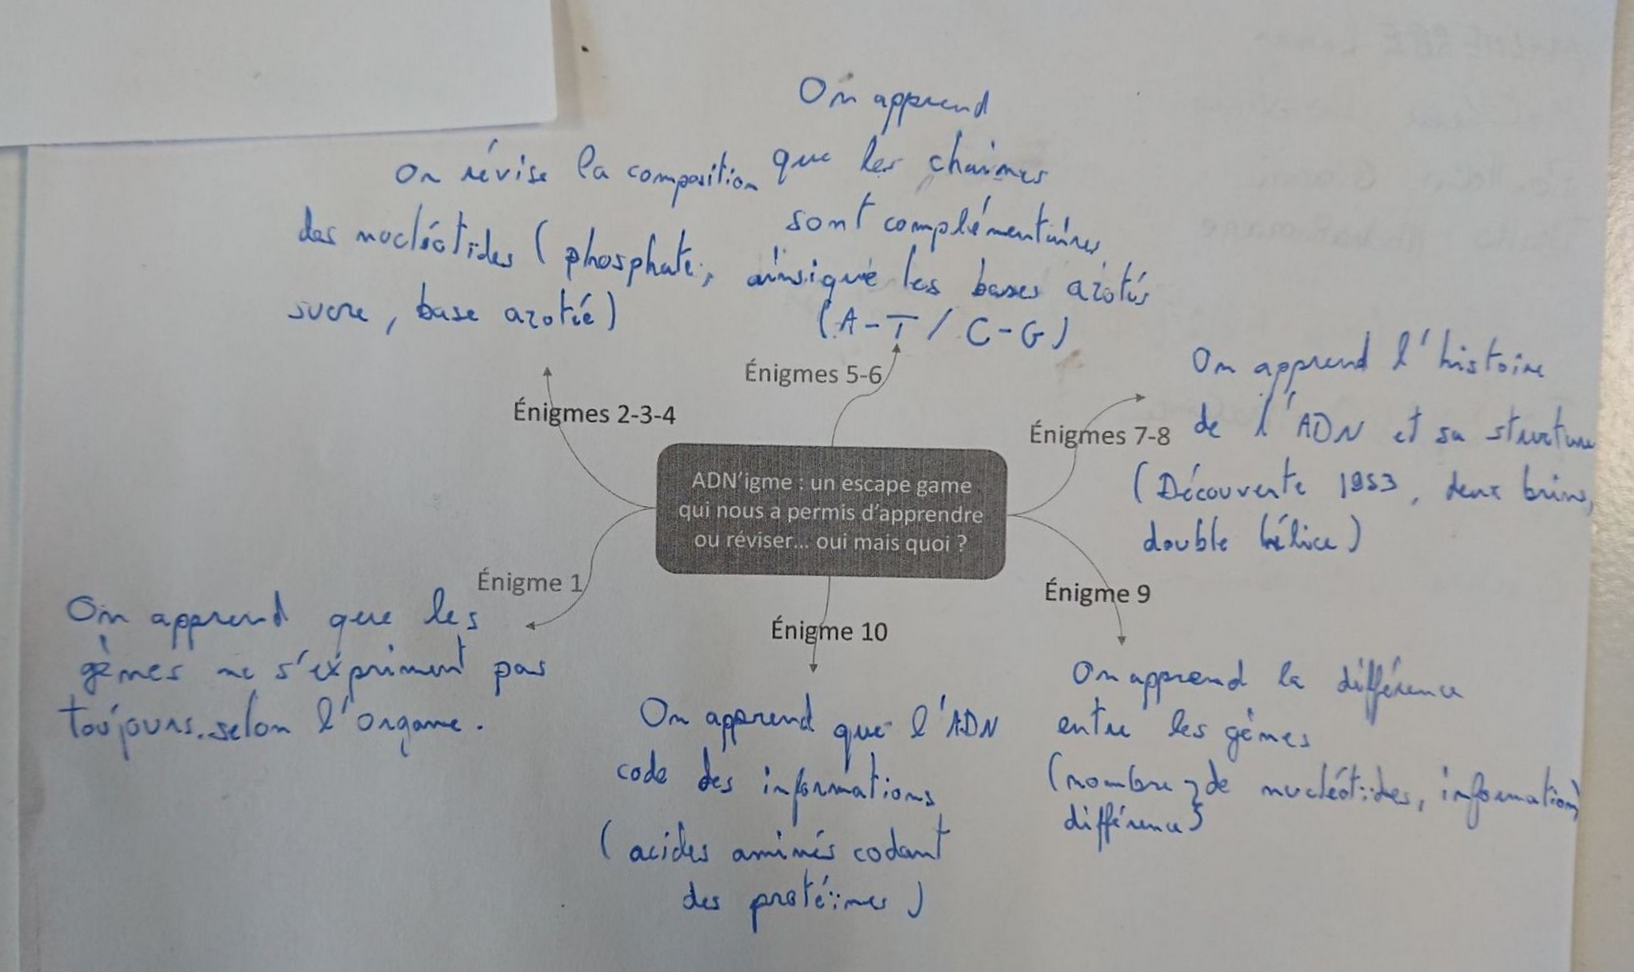 On apprend
que les chaînes
sont complémentaires,
ainsi que les bases azotés
(A-T / C-G)
On révise la composition
des nucléotides (phosphate,
sucre, base azotée)
Énigmes 5-6
Énigmes 2-3-4
On apprend l'histoire
de l'ADN et sa structure
(Découverte 1953, deux brins,
double hélice)
Énigmes 7-8
ADN'igme : un escape game
qui nous a permis d'apprendre
ou réviser... oui mais quoi ?
Énigme 1
On apprend que les
gènes ne s'expriment pas
toujours selon l'organe.
Énigme 10
On apprend que l'ADN
code des informations
(acides aminés codant
des protéines)
Énigme 9
On apprend la différence
entre les gènes
(nombre de nucléotides, information
différence)